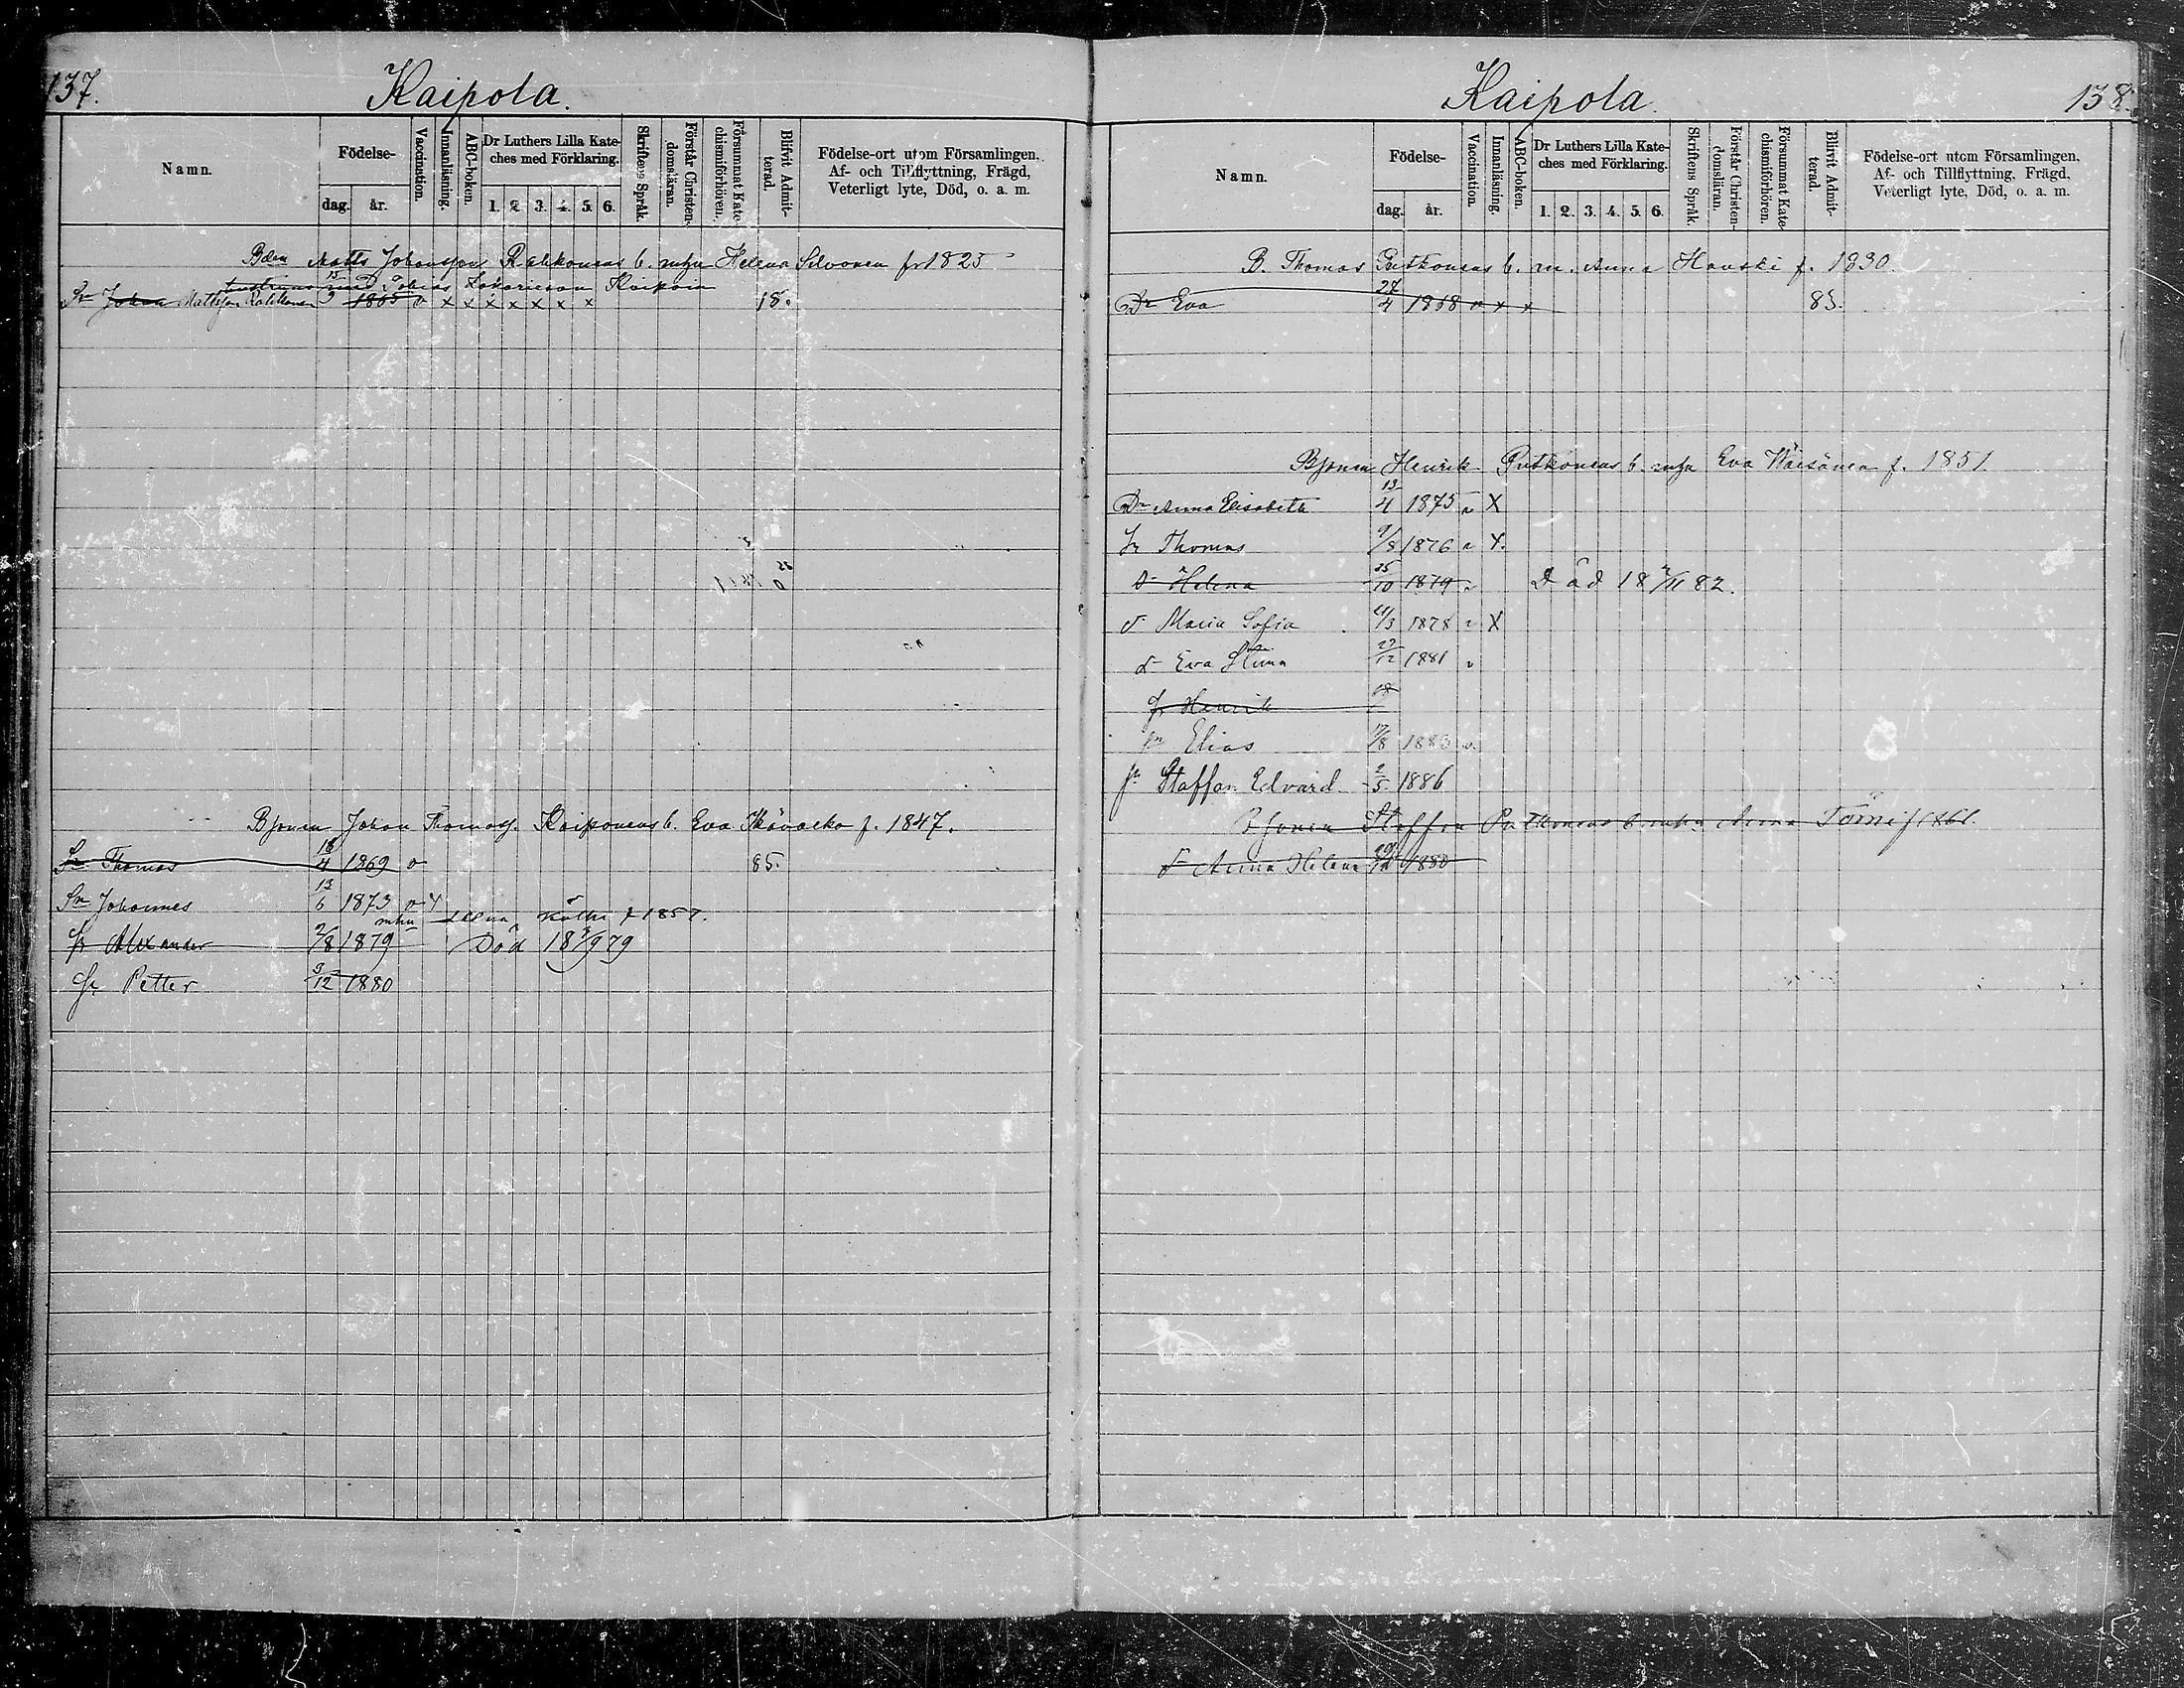 137.
Kaipola.
Namn.
Födelse-
dag.
år.
Vaccination.
Innanläsning.
ABC-boken.
Dr Luthers Lilla Kate-
ches med Förklaring.
1. 2. 3. 4. 5. 6.
Skriftens Språk.
Förstår Christen-
domsläran.
Försummat Kate-
chismiförhören.
Blifvit Admit-
terad.
Födelse-ort utom Församlingen,
Af- och Tillflyttning, Frägd,
Veterligt lyte, Död, o. a. m.
Bden Matts Johansson Rahkonens b. Helena Silvonen f. 1825
Tobias
Sn Johan Mattsson Rahkonen 15/3 1865 v x x x x x x x 18.
Bsonen Johan Thomass. Kaiponens b. Eva f. 1847.
Sn Thomas 18/4 1869 v 85.
Sn Johannes 13/6 1873 v x
f 1857.
Sn Alexander 2/8 1879 Död 18 3/9 79
Sn Petter 3/12 1880
Kaipola.
138.
Namn.
Födelse-
dag.
år.
Vaccination.
Innanläsning.
ABC-boken.
Dr Luthers Lilla Kate-
ches med Förklaring.
1. 2. 3. 4. 5. 6.
Skriftens Språk.
Förstår Christen-
domsläran.
Försummat Kate-
chismiförhören.
Blifvit Admit-
terad.
Födelse-ort utom Församlingen,
Af- och Tillflyttning, Frägd,
Veterligt lyte, Död, o. a. m.
B. Thomas Putkonens b. m. Anna Hauski f. 1830.
Dr Eva 27/4 1868 v x x 83.
Bsonen Henrik Putkonens b. Eva Wäisänen f. 1851
Dr Anna Elisabeth 13/4 1875 v X
Sn Thomas 9/8 1876 v X.
D Helena 25/10 1879 v Död 18 /11 82.
d Maria Sofia /3 1878 v X
d Eva Stiina 27/12 1881 v
Sn Henrik
Sn Elias 17/8 1883 v.
Sn Staffan Edvard 2/5 1886
Bsonen Staffan Putkonens b. Anna Törni f 1861.
d Anna Helena 1880